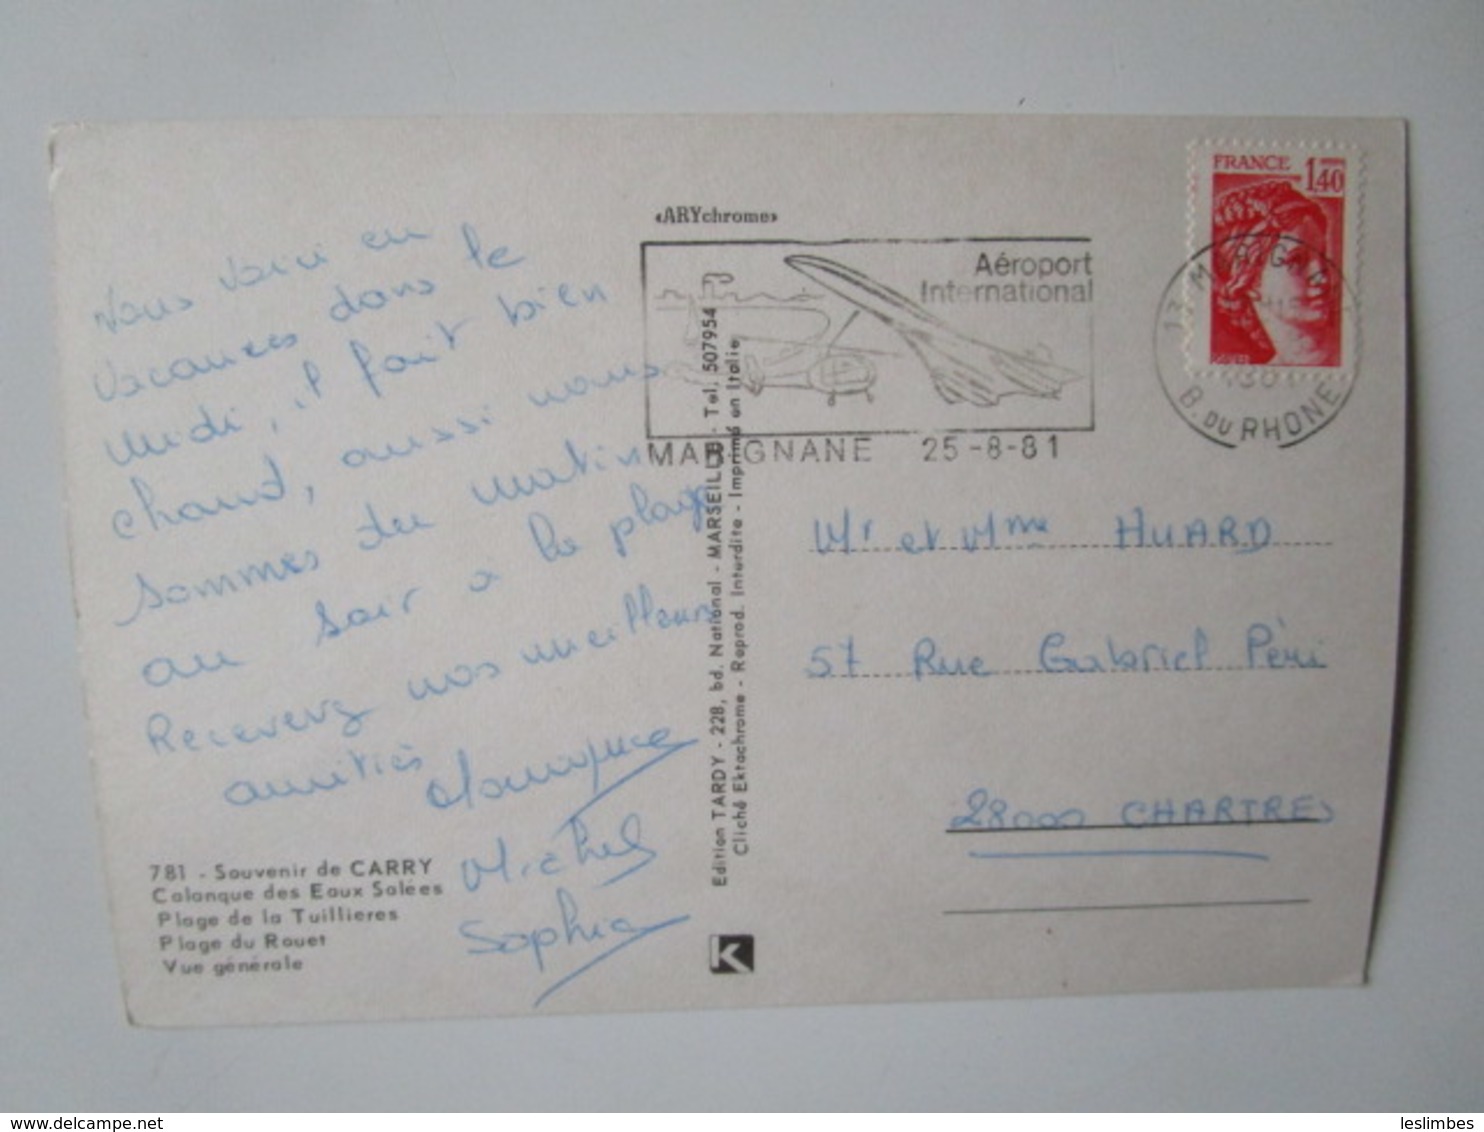 Nous voici en
vacances dans le
midi, il fait bien
chaud, aussi nous
sommes du matin
au soir a la plage
Recevez nos meilleurs
amitiés
Michel
Sophie
781 - Souvenir de CARRY
Calanque des Eaux Salées
Plage de la Tuillieres
Plage du Rouet
Vue générale
«ARYchrome»
Aéroport
International
MARIGNANE 25-8-81
Edition TARDY - 228, bd. National - MARSEILLE - Tel. 507954
Cliché Ektachrome - Reprod. Interdite - Imprimé en Italie
K
FRANCE 1,40
13 MARIGNANE
B. DU RHONE
Mr et Mme HUARD
57 Rue Gabriel Péri
28000 CHARTRES
leslimbes